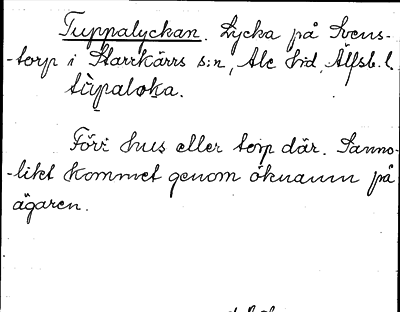 Tuppalyckan. Lycka på Svens-
-torp i Starrkärrs s:n, Ale hd, Älfsb. l.
tùpaloka.
Förr hus eller torp där. Sanno-
-likt kommet genom öknamn på
ägaren.